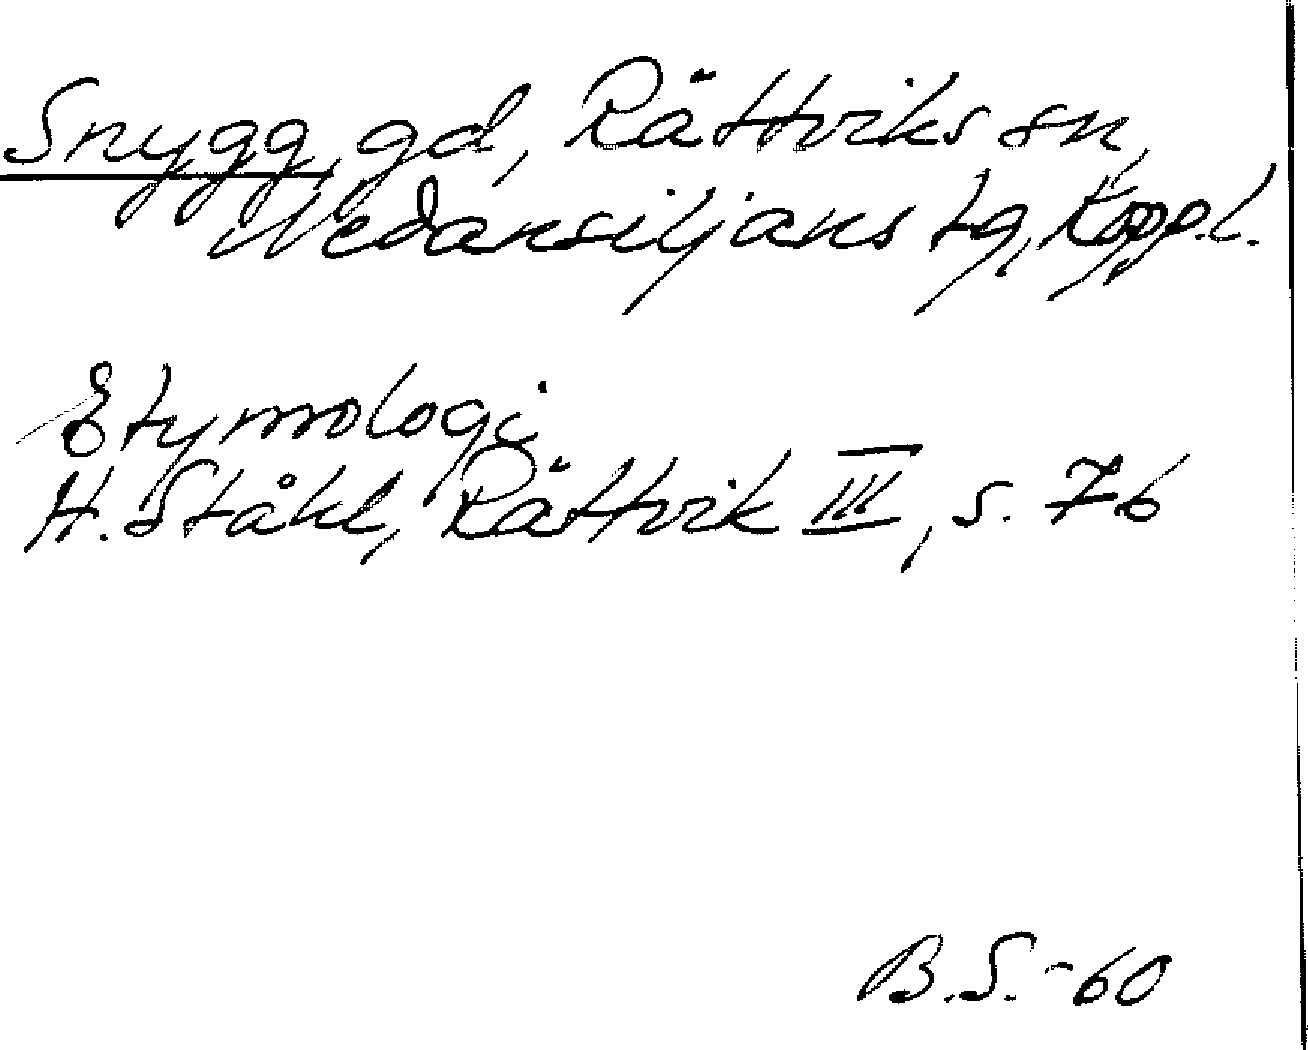 Snygg, gd, Rättviks sn,
Nedansiljans tg, Koppl.
Etymologi
H. Ståhl, Rättvik III, s. 76
B.S. -60